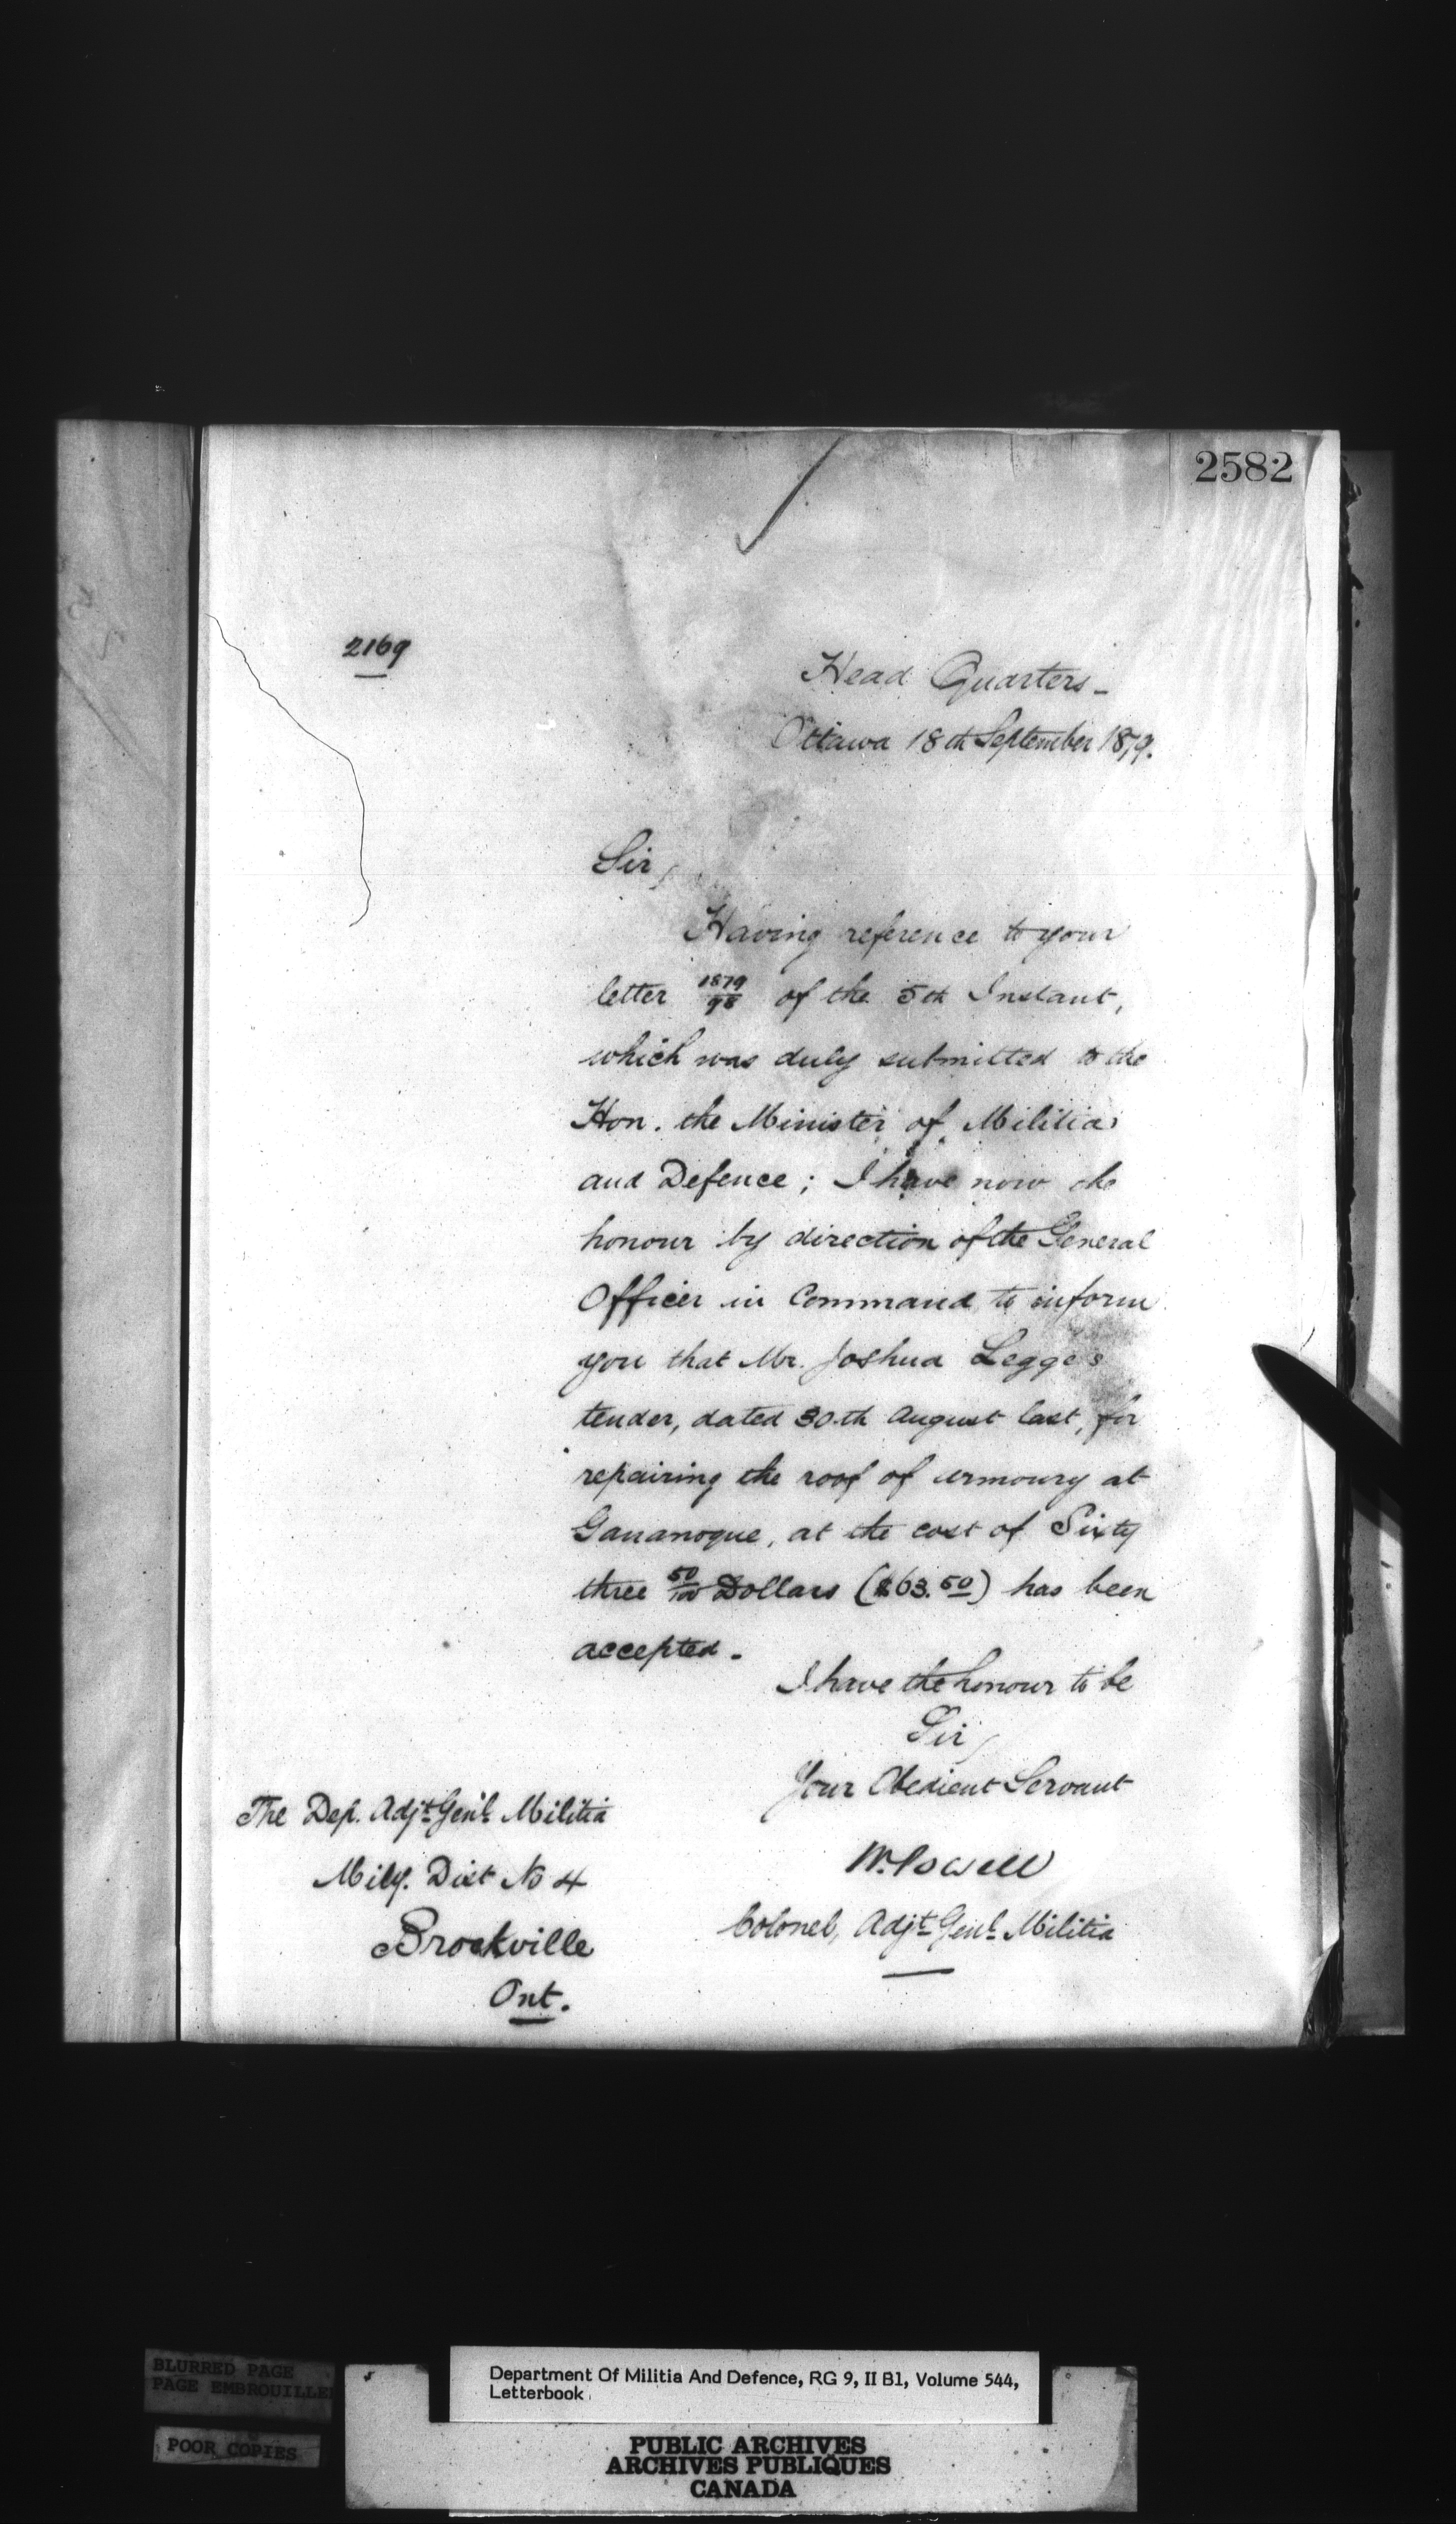 2582
2169
Head Quarters -
Ottawa 18th September 1879.
Sir,
Having reference to your
letter 1879/98 of the 5th Instant,
which was duly submitted to the
Hon. the Minister of Militia
and Defence; I have now the
honour by direction of the General
Officer in Command, to inform
you that Mr. Joshua Legge's
tender, dated 30th August last, for
repairing the roof of armoury at
Gananoque, at the cost of Sixty
three 50/100 Dollars ($63.50) has been
accepted.
I have the honour to be
Sir,
Your Obedient Servant
W. Powell
Colonel, Adjt. Genl. Militia
The Dep. Adjt. Genl. Militia
Mily. Dist No 4
Brockville
Ont.
BLURRED PAGE
PAGE EMBROUILLEE
POOR COPIES
Department Of Militia And Defence, RG 9, II B1, Volume 544,
Letterbook
PUBLIC ARCHIVES
ARCHIVES PUBLIQUES
CANADA